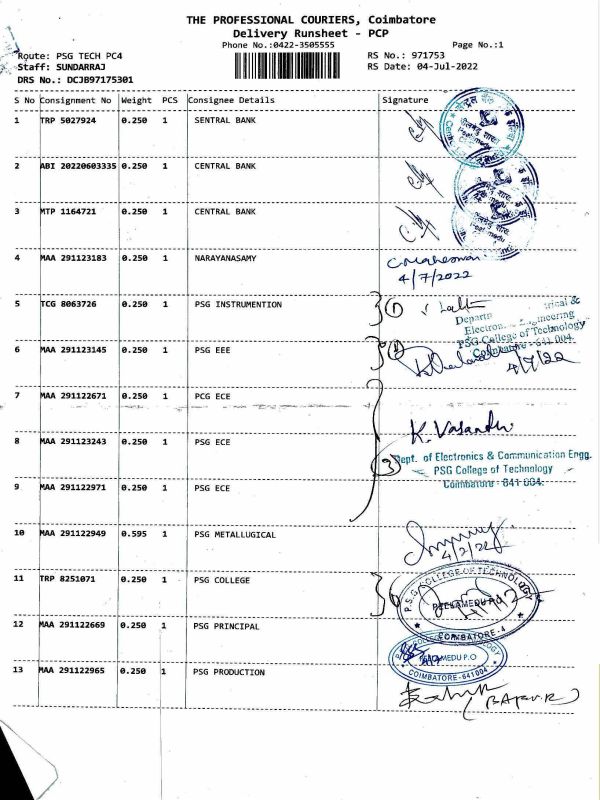 THE PROFESSIONAL COURIERS, Coimbatore
Delivery Runsheet - PCP
Phone No.:0422-3505555 Page No.:1
Route: PSG TECH PC4 RS No.: 971753
Staff: SUNDARRAJ RS Date: 04-Jul-2022
DRS No.: DCJB97175301
S No Consignment No Weight PCS Consignee Details Signature
1 TRP 5027924 0.250 1 SENTRAL BANK
2 ABI 20220603335 0.250 1 CENTRAL BANK
3 MTP 1164721 0.250 1 CENTRAL BANK
4 MAA 291123183 0.250 1 NARAYANASAMY
4/7/2022
5 TCG 8063726 0.250 1 PSG INSTRUMENTION 1
Electron Engineering
PSG College of Technology
Coimbatore - 641 004.
6 MAA 291123145 0.250 1 PSG EEE
4/7/22
7 MAA 291122671 0.250 1 PCG ECE
K. Vasanthi
8 MAA 291123243 0.250 1 PSG ECE 3
Dept. of Electronics & Communication Engg.
PSG College of Technology
Coimbatore - 641 004.
9 MAA 291122971 0.250 1 PSG ECE
10 MAA 291122949 0.595 1 PSG METALLUGICAL
11 TRP 8251071 0.250 1 PSG COLLEGE
P.S.G. COLLEGE OF TECHNOLOGY
PEELAMEDU P.O
COIMBATORE-4
12 MAA 291122669 0.250 1 PSG PRINCIPAL
COIMBATORE-641004
13 MAA 291122965 0.250 1 PSG PRODUCTION